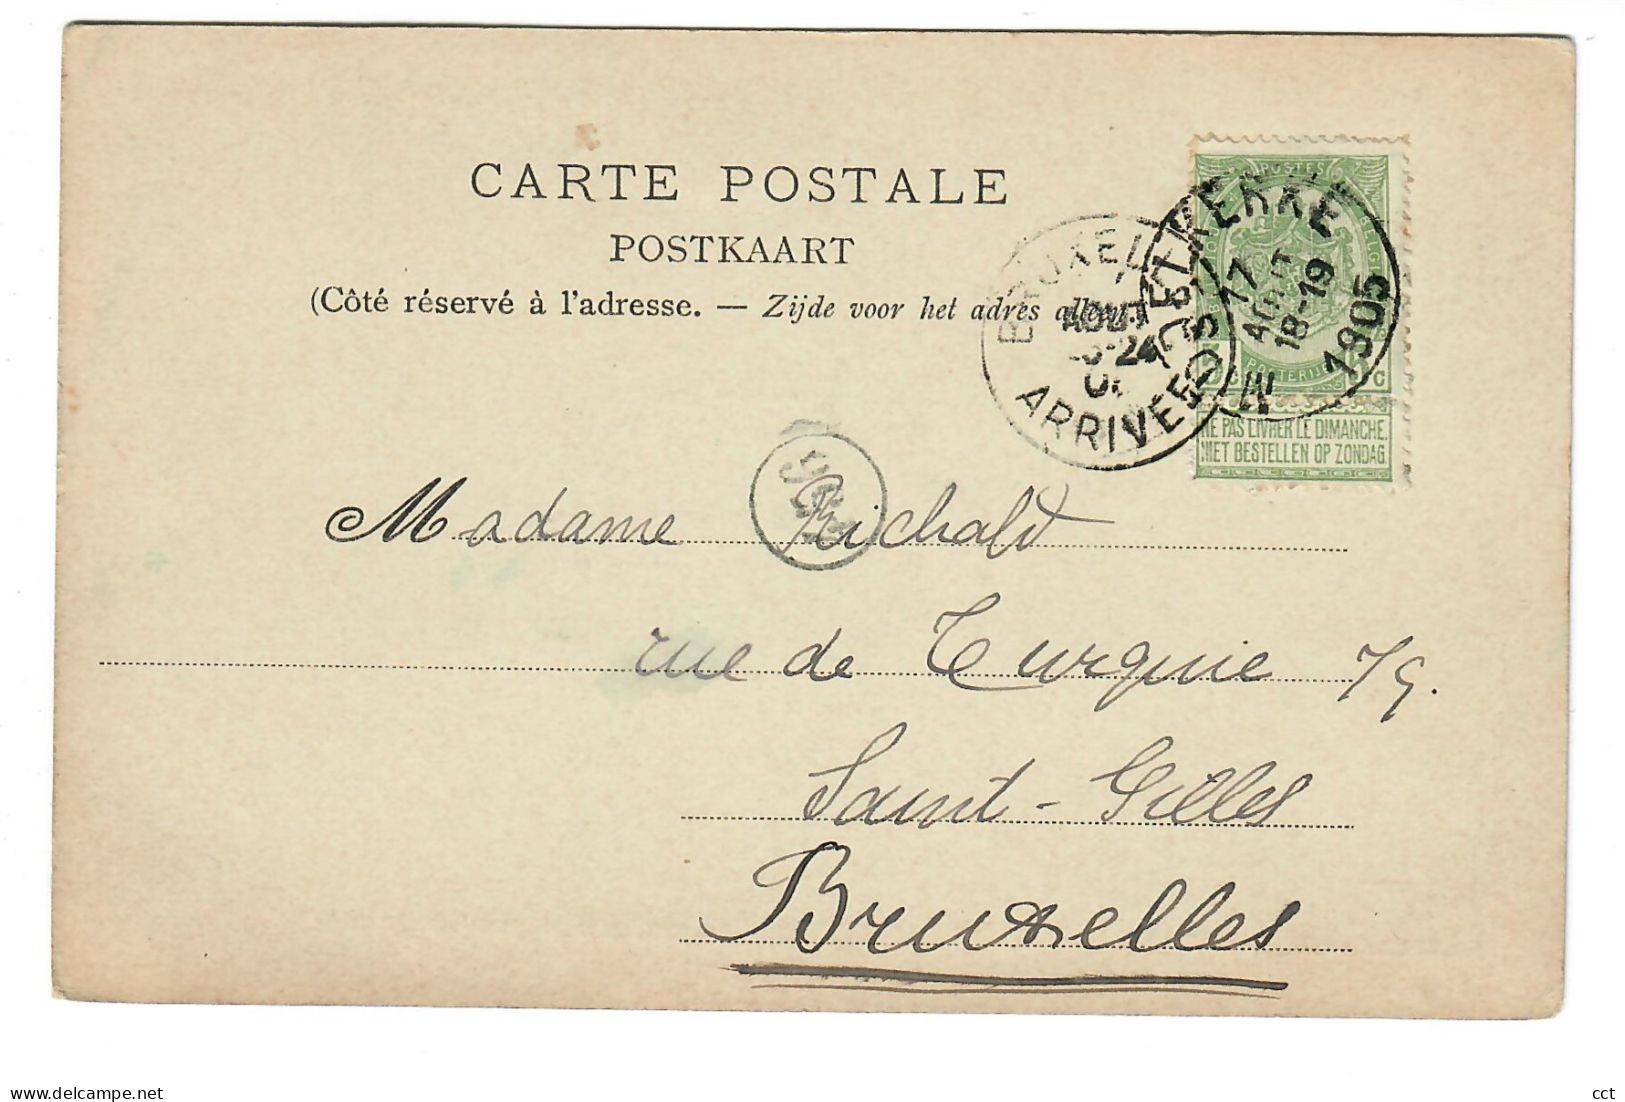 CARTE POSTALE
POSTKAART
(Côté réservé à l'adresse. — Zijde voor het adres alleen.)
POSTES
5 C
NE PAS LIVRER LE DIMANCHE.
NIET BESTELLEN OP ZONDAG
17
AOUT
18-19
1905
AOUT
ARRIVÉE
Madame Richald
rue de Turquie 79.
Saint-Gilles
Bruxelles
www.delcampe.net
cct